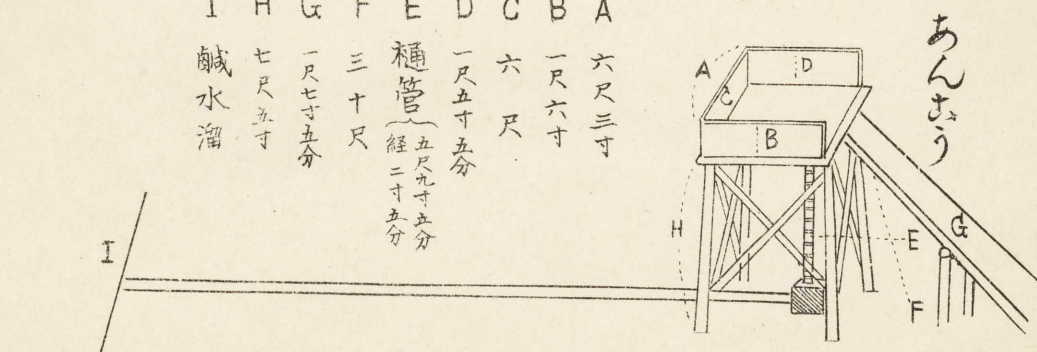 あんこう
A 六尺三寸
B 一尺六寸
C 六尺
D 一尺五寸五分
E 樋管 五尺九寸五分
経二寸五分
F 三十尺
G 一尺七寸五分
H 七尺五寸
I 鹹水溜
A
C
D
B
G
H
E
F
I